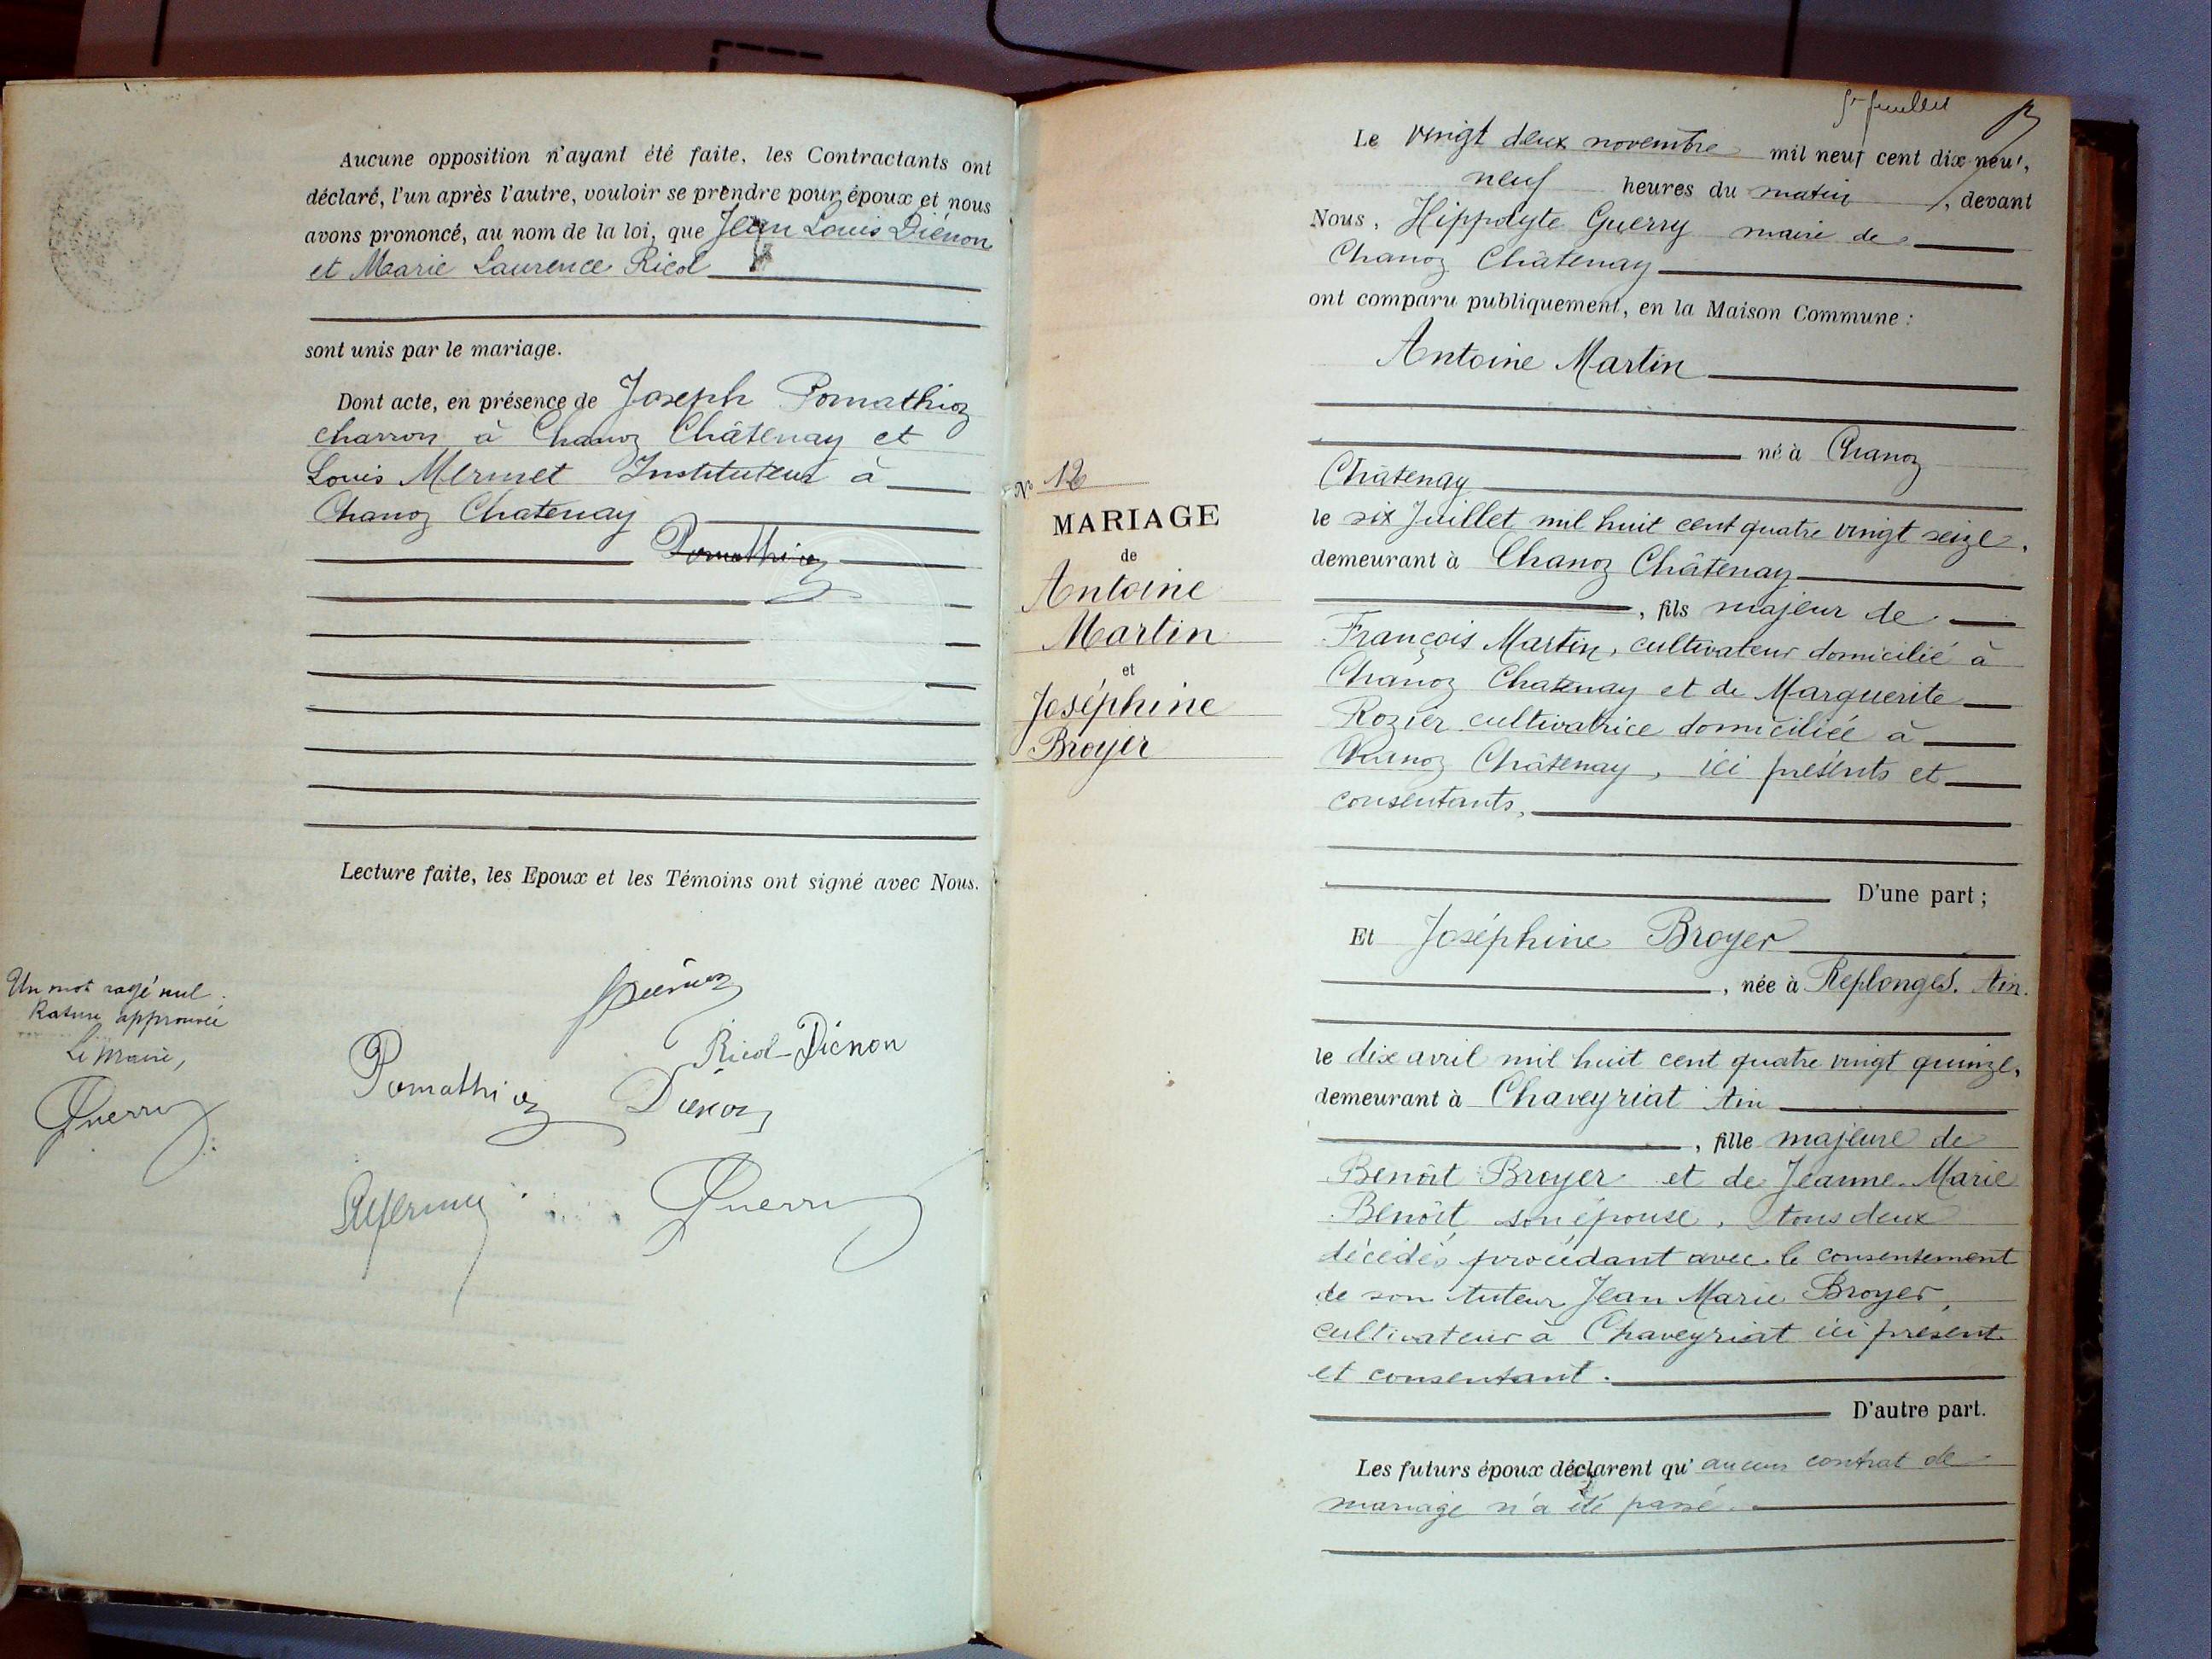 Aucune opposition n'ayant été faite, les Contractants ont
déclaré, l'un après l'autre, vouloir se prendre pour époux et nous
avons prononcé, au nom de la loi, que Jean Louis Diénon
et Marie Laurence Ricol
sont unis par le mariage.
Dont acte, en présence de Joseph Pomathioz
charron à Chanoz Châtenay et
Louis Mermet Instituteur à
Chanoz Chatenay
Pomathioz
Lecture faite, les Epoux et les Témoins ont signé avec Nous.
Un mot rayé nul.
Rature approuvée
Le Maire,
Guerry
Ricol-Diénon
Pomathioz Diénon
Guerry
5e feuillet
Le vingt deux novembre mil neuf cent dix-neuf,
neuf heures du matin, devant
Nous, Hippolyte Guerry maire de
Chanoz Châtenay
ont comparu publiquement, en la Maison Commune :
Antoine Martin
né à Chanoz
Châtenay
le six Juillet mil huit cent quatre vingt seize,
demeurant à Chanoz Châtenay
, fils majeur de
François Martin, cultivateur domicilié à
Chanoz Chatenay et de Marguerite
Rozier cultivatrice domiciliée à
Chanoz Châtenay, ici présents et
consentants,
D'une part ;
Et Joséphine Broyer
, née à Replonges. Ain.
le dix avril mil huit cent quatre vingt quinze,
demeurant à Chaveyriat Ain
, fille majeure de
Benoit Broyer et de Jeanne-Marie
Benoit son épouse, tous deux
décédés procédant avec le consentement
de son tuteur Jean Marie Broyer,
cultivateur à Chaveyriat ici présent
et consentant.
D'autre part.
Les futurs époux déclarent qu'aucun contrat de
mariage n'a été passé.
No 12
MARIAGE
de
Antoine
Martin
et
Joséphine
Broyer